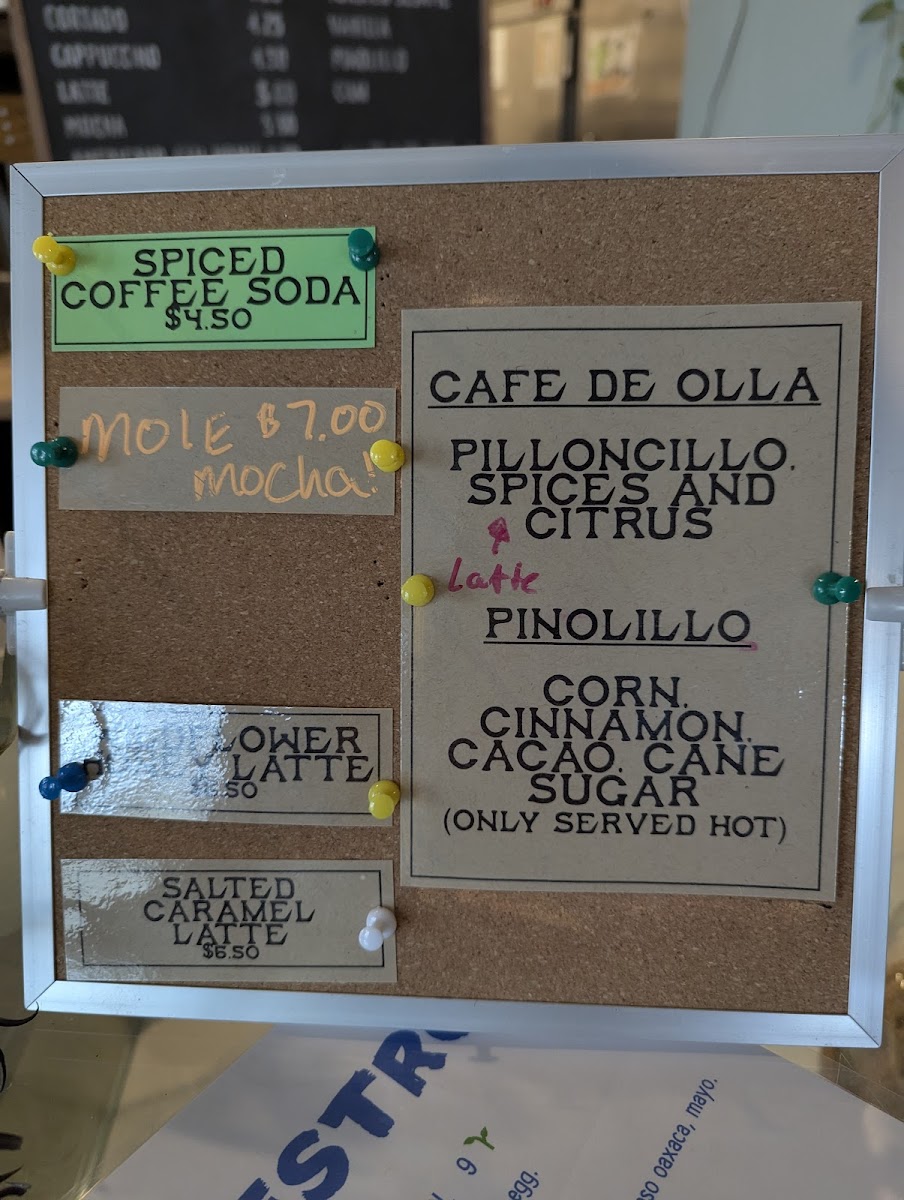 CORTADO 4.25
CAPPUCCINO
VANILLA
LATTE
MOCHA
SPICED
COFFEE SODA
$4.50
MOLE $7.00
mocha!
LOWER
LATTE
.50
SALTED
CARAMEL
LATTE
$6.50
CAFE DE OLLA
PILLONCILLO,
SPICES AND
CITRUS
Latte
PINOLILLO
CORN,
CINNAMON,
CACAO, CANE
SUGAR
(ONLY SERVED HOT)
ESTR
9
egg.
so oaxaca, mayo.